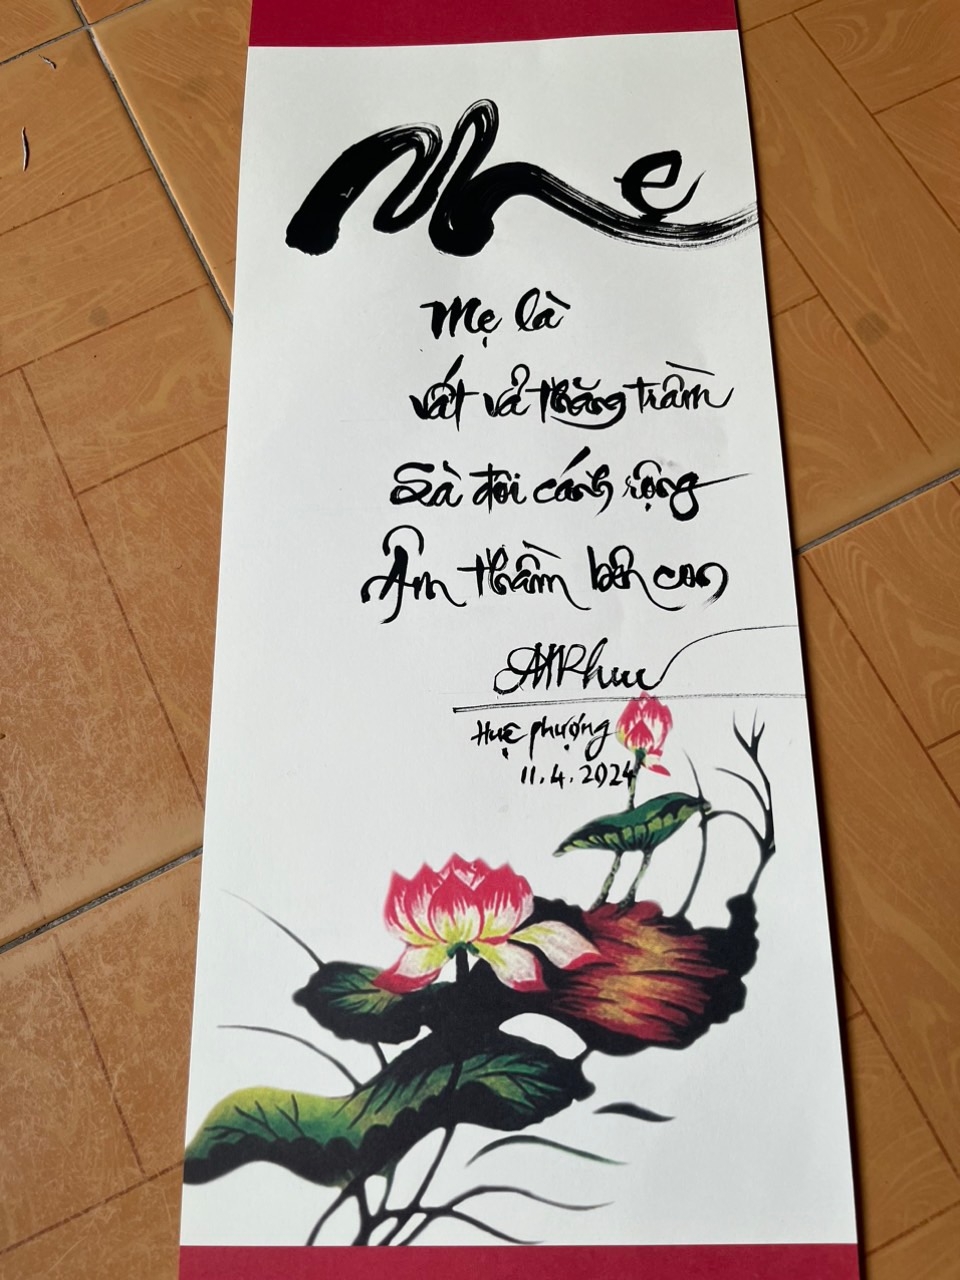 Mẹ
Mẹ là
vất vả thăng trầm
Là đôi cánh rộng
Âm thầm bên con
Huệ phượng
11.4.2024